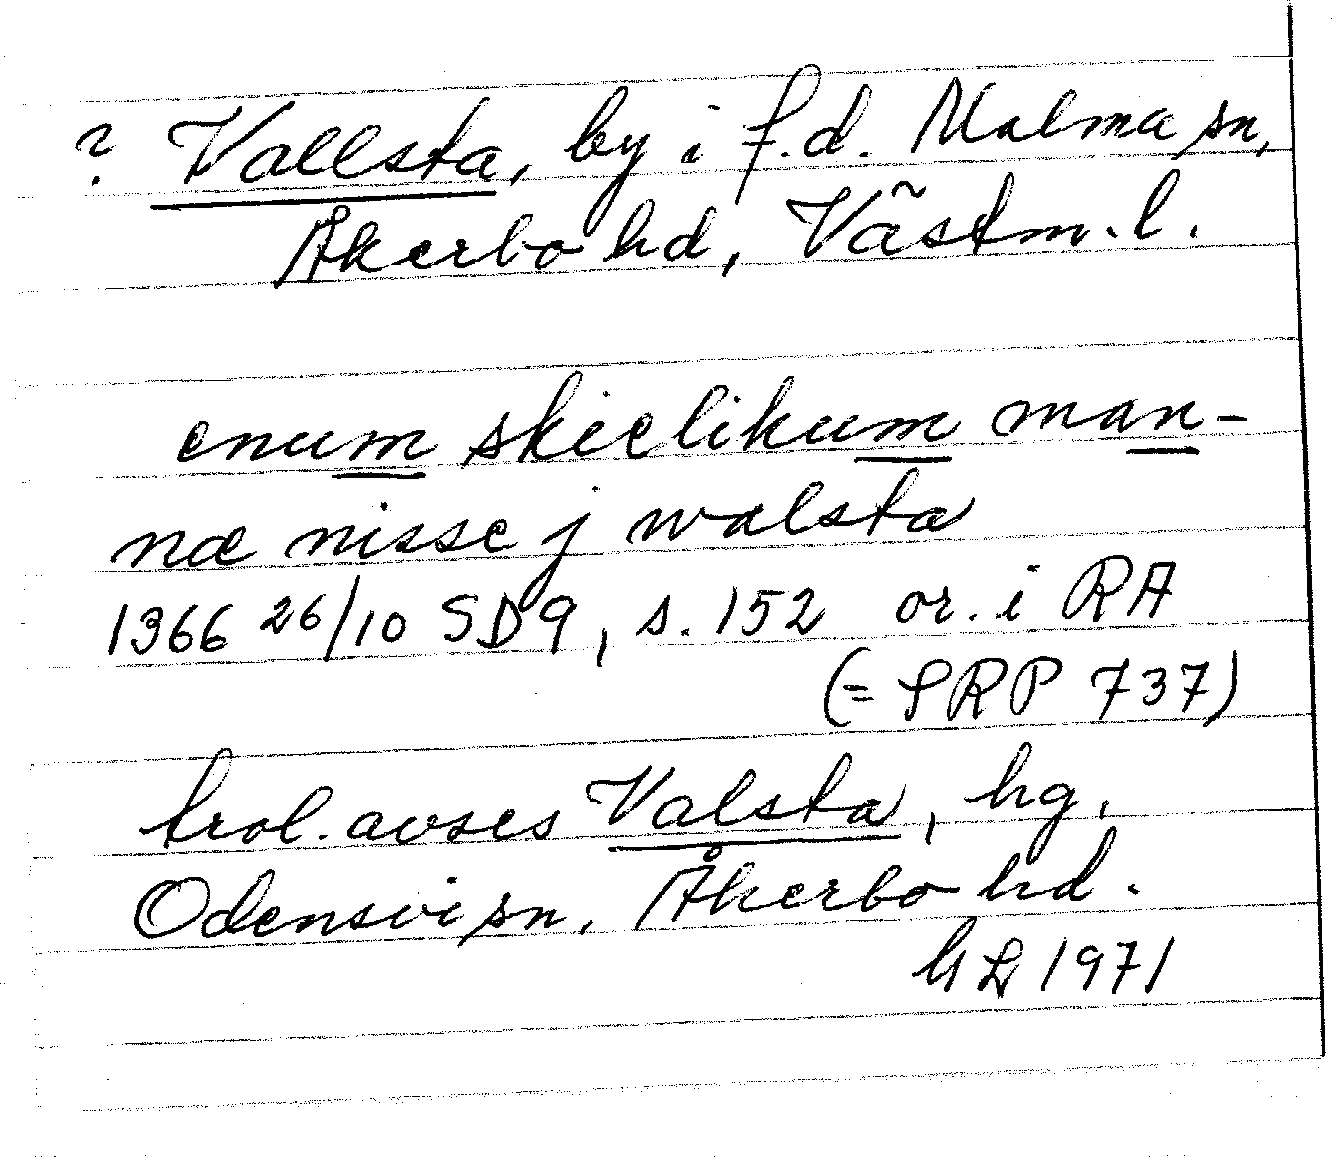 ? Vallsta, by i f.d. Malma sn,
Åkerbo hd, Västm. l.
enum skielikum man-
næ nisse j walsta
1366 26/10 SD9, s. 152 or. i RA
(= SRP 737)
trol. avses Valsta, hg,
Odensvi sn, Åkerbo hd.
1971